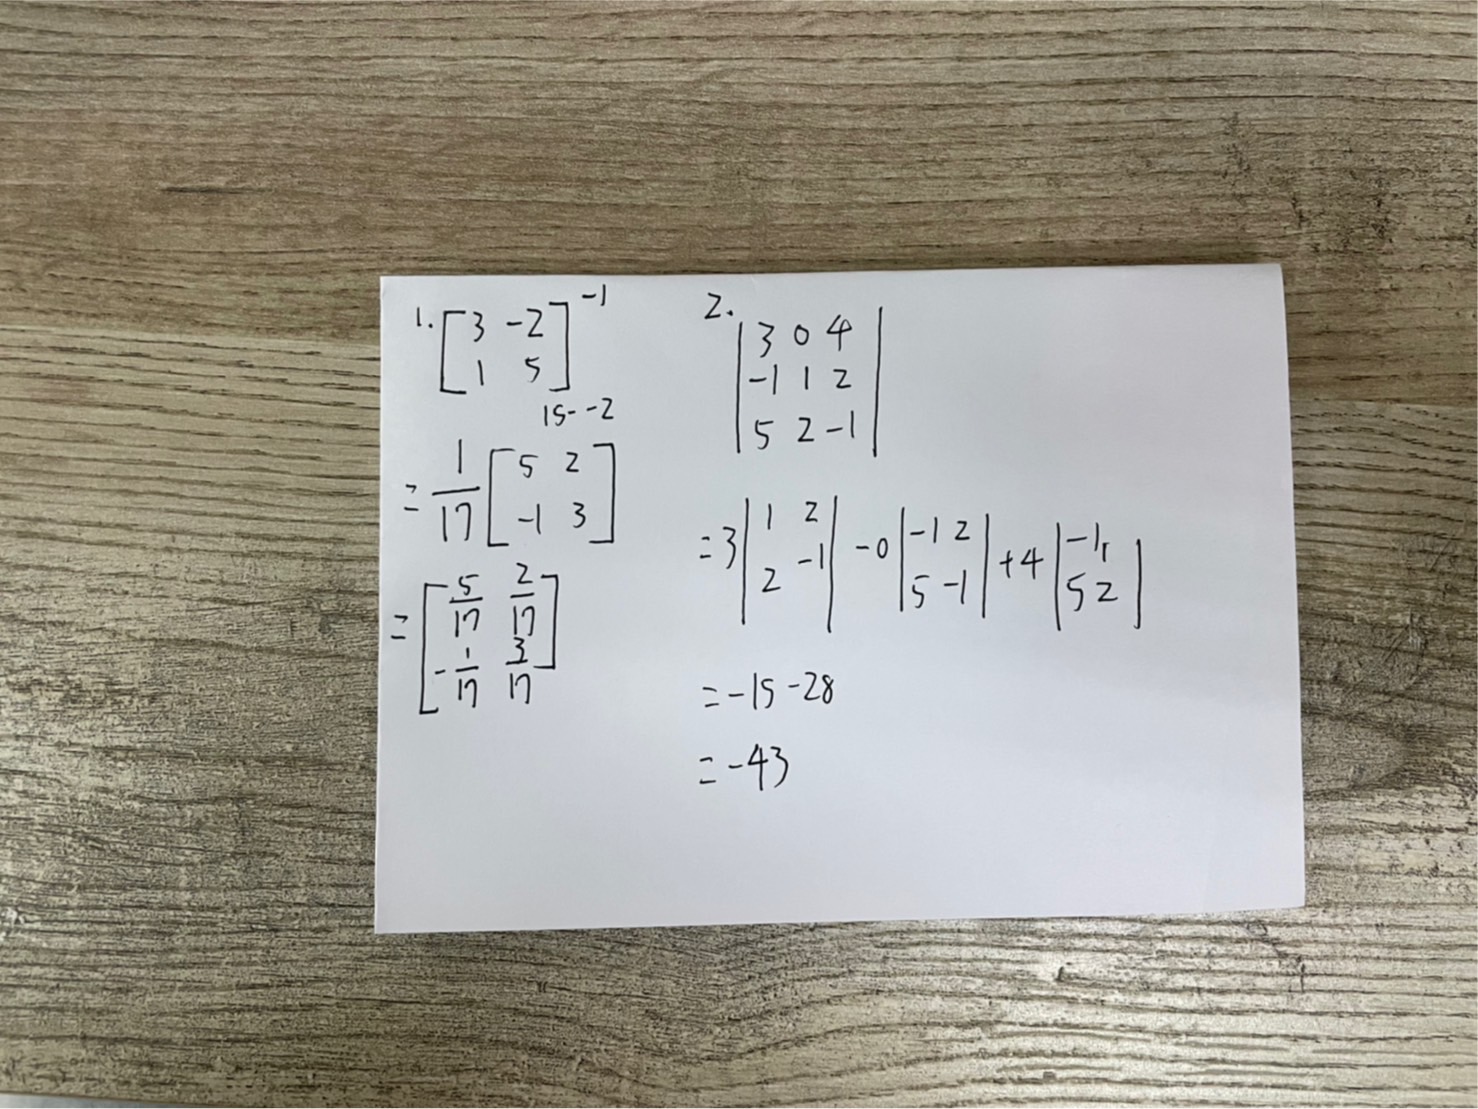 1. [3 -2
1 5]^-1
15--2
= 1/17 [5 2
-1 3]
= [5/17 2/17
-1/17 3/17]
2. |3 0 4
-1 1 2
5 2 -1|
= 3 |1 2
2 -1| -0 |-1 2
5 -1| +4 |-1 1
5 2|
= -15 -28
= -43